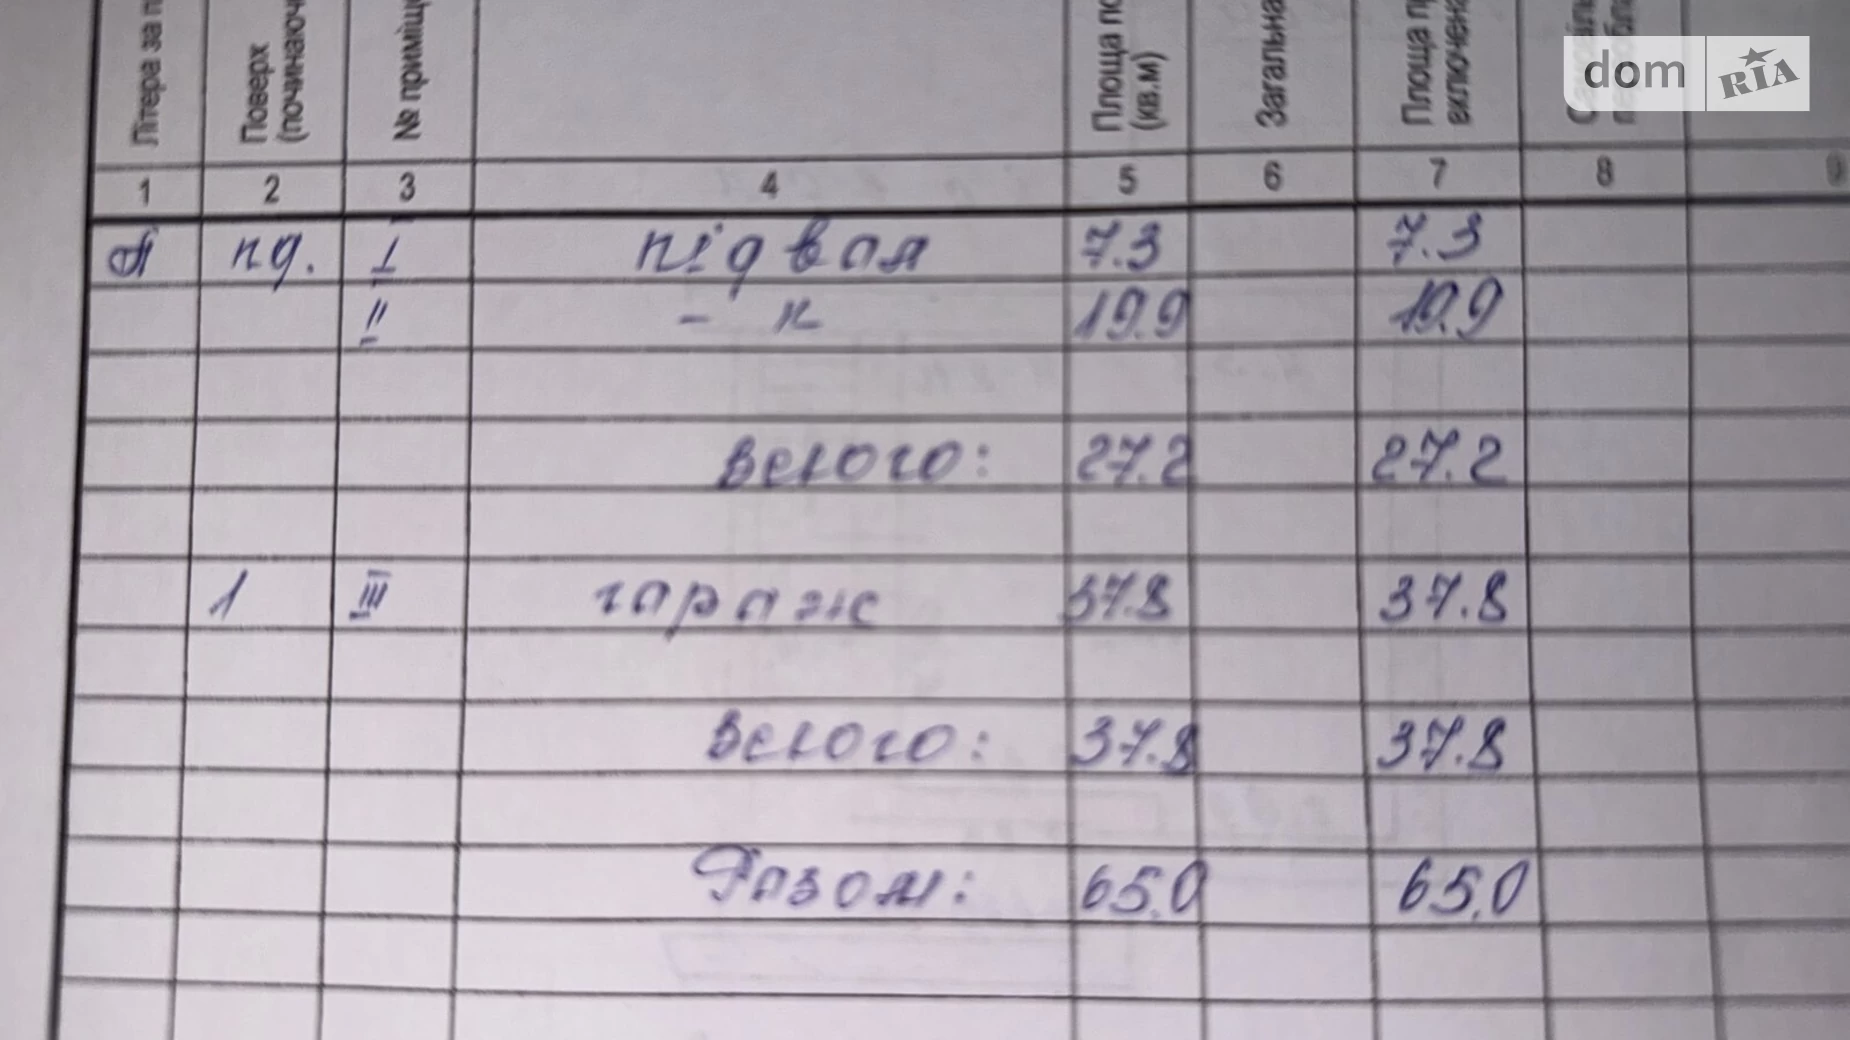 Літера за п
Поверх (починаюч
№ приміщ
Площа по (кв.м)
Загальна
Площа пр включена
dom RIA
1 2 3 4 5 6 7 8 9
А пд. I підвал 7.3 7.3
II - " 19.9 19.9
Всього: 27.2 27.2
1 III гараж 37.8 37.8
Всього: 37.8 37.8
Разом: 65.0 65.0